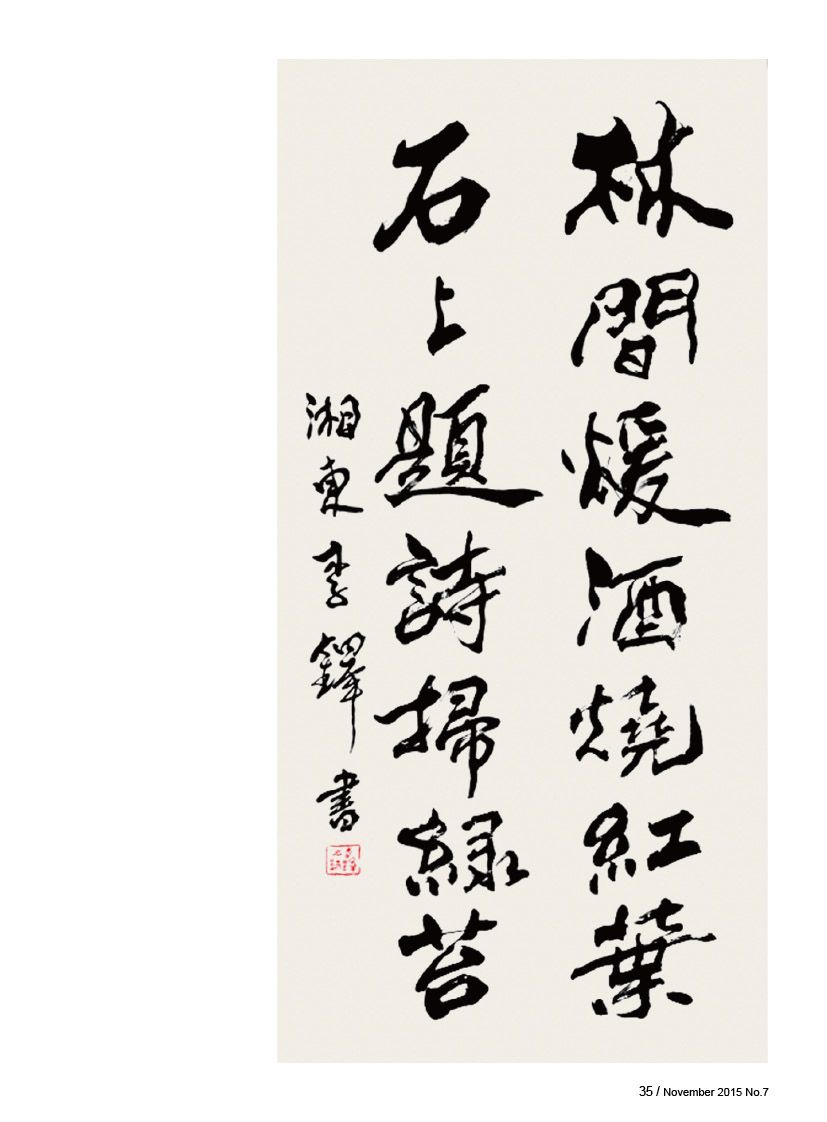 林間煖酒燒紅葉
石上題詩掃緑苔
湘東李鐸書
35 / November 2015 No.7